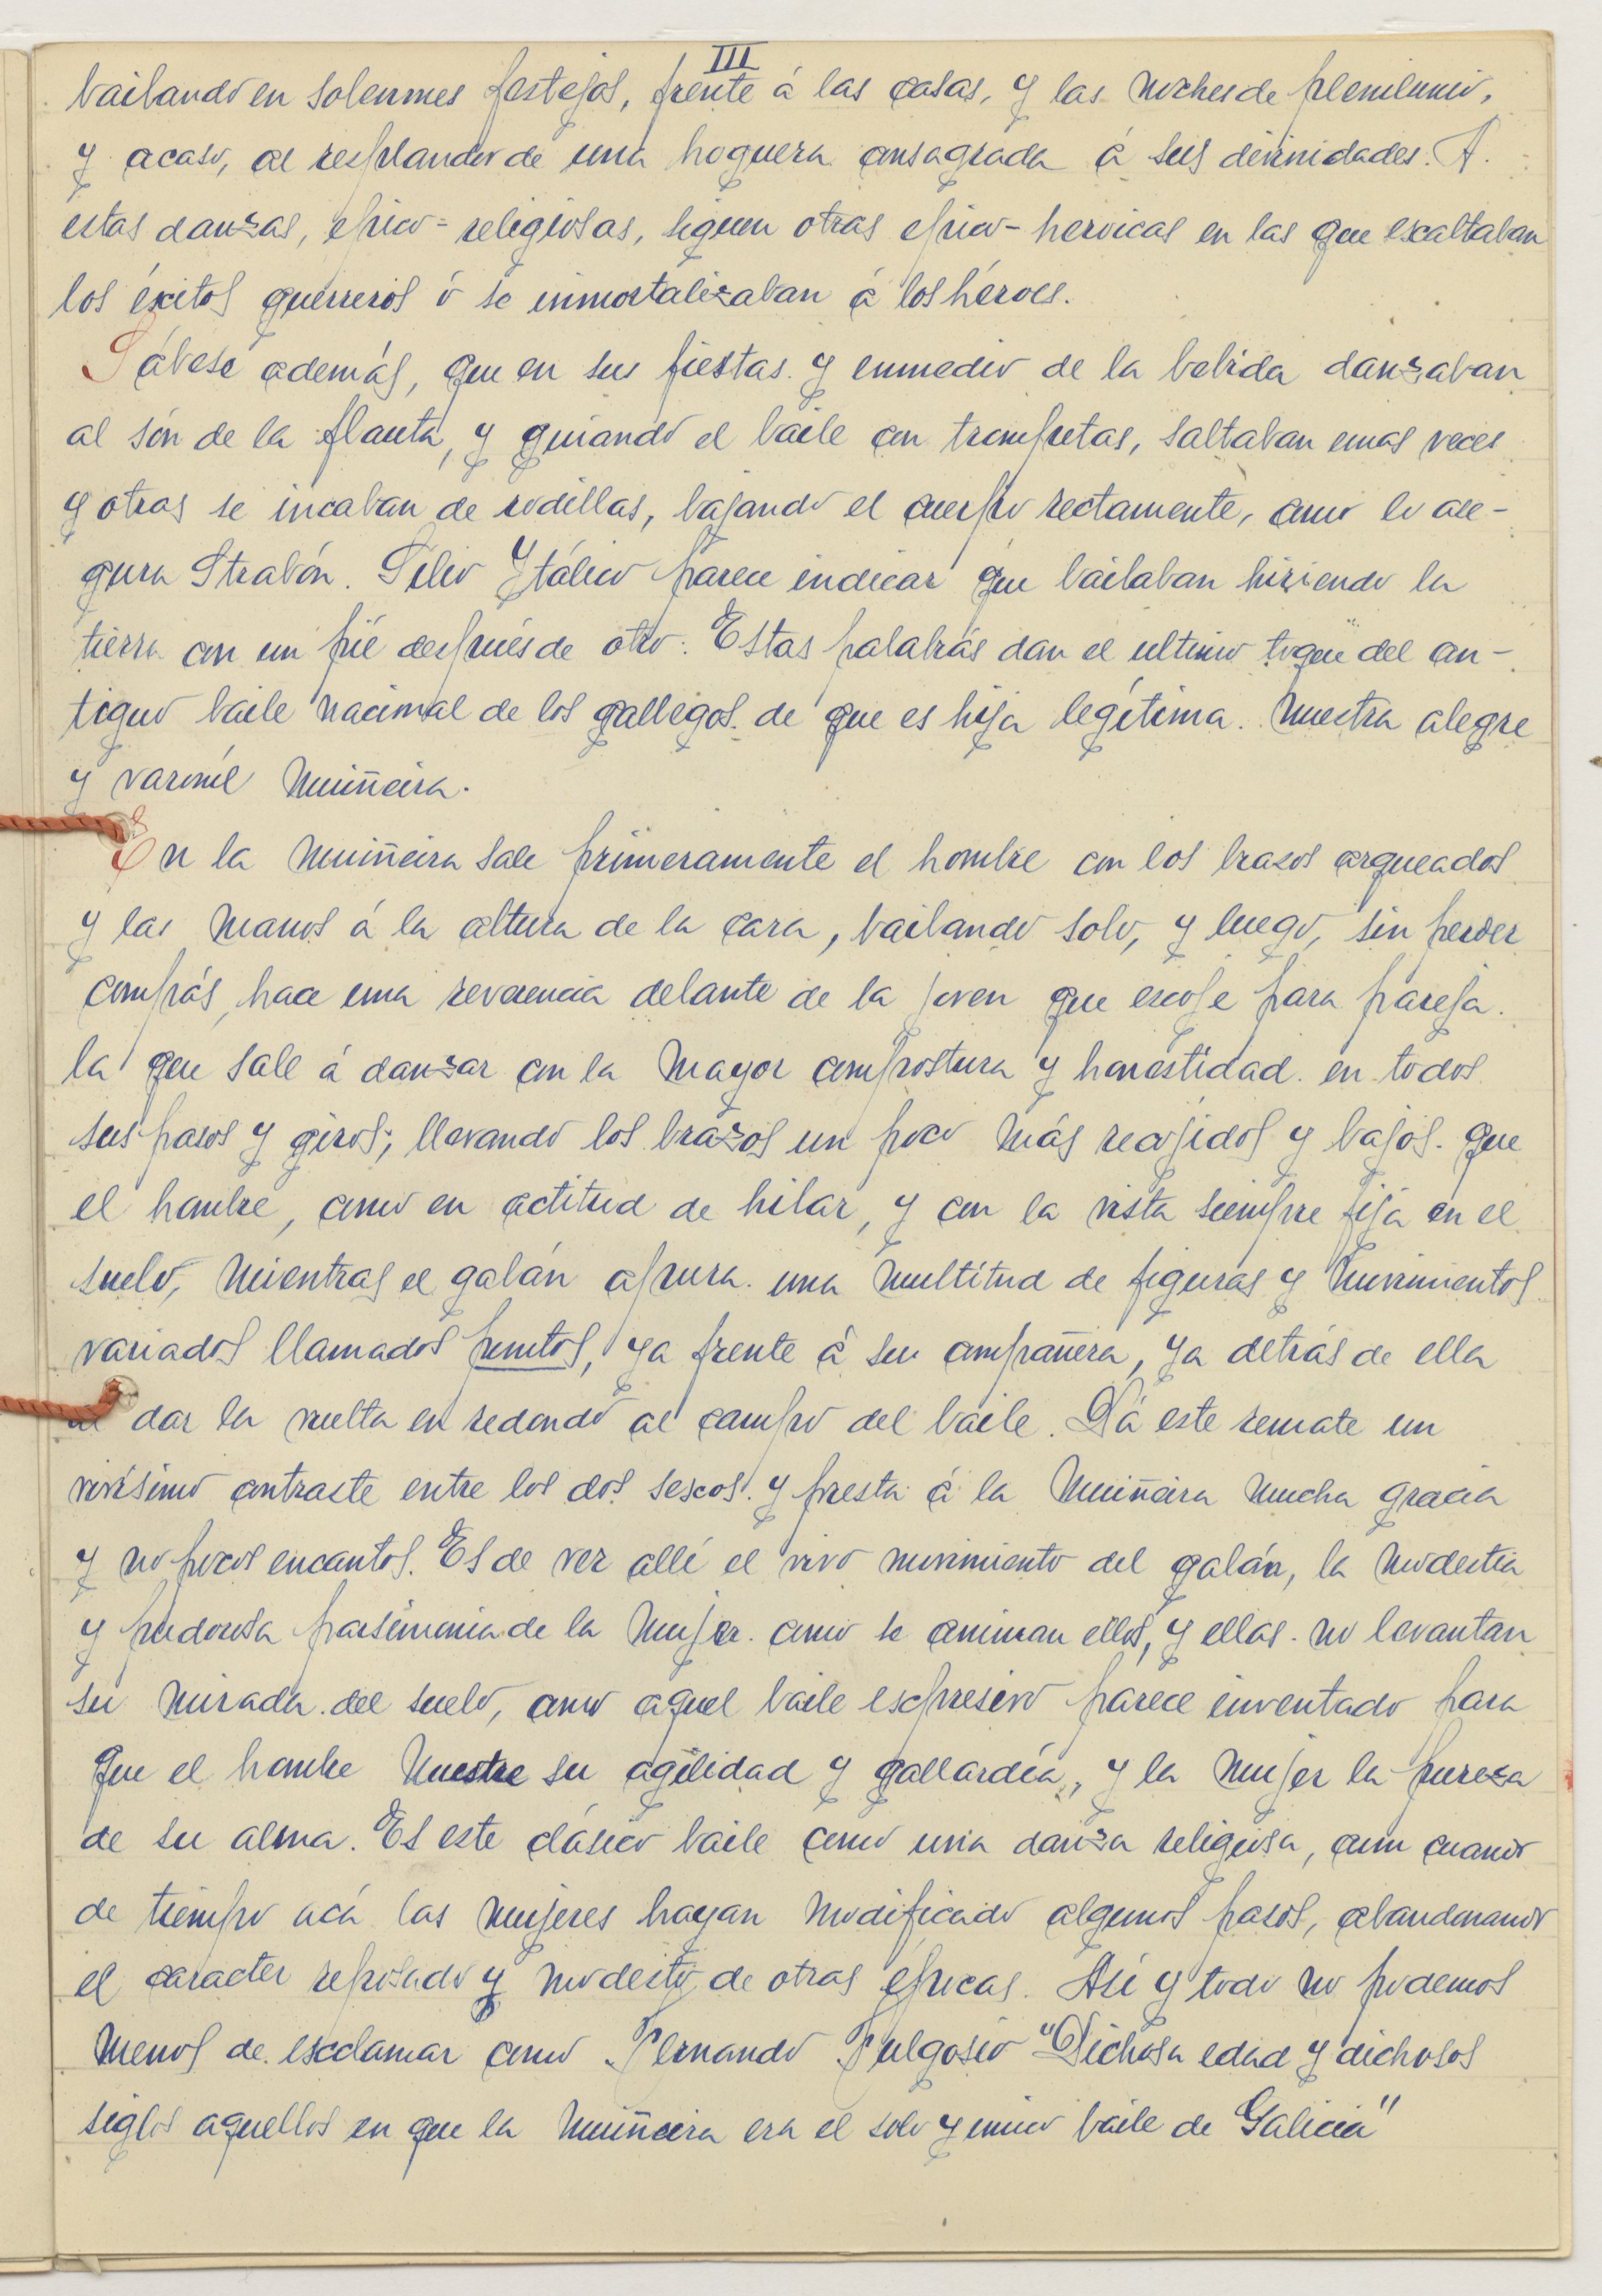 III
bailando en solemnes festejos, frente á las casas, y las noches de plenilunio,
y acaso, al resplandor de una hoguera consagrada á sus divinidades. A.
estas danzas, epico=religiosas, siguen otras epico-heroicas en las que escaltaban
los éxitos guerreros ó se inmortalizaban á los héroes.
Sábese además, que en sus fiestas y enmedio de la bebida danzaban
al són de la flauta, y guiando el baile con trompetas, saltaban unas veces
y otras se incaban de rodillas, bajando el cuerpo rectamente, como lo ase-
gura Strabón. Silio Itálico parece indicar que bailaban hiriendo la
tierra con un pié después de otro. Estas palabras dan el ultimo toque del an-
tiguo baile nacional de los gallegos de que es hija legítima. nuestra alegre
y varonil muiñeira.
En la muiñeira sale primeramente el hombre con los brazos arqueados
y las manos á la altura de la cara, bailando solo, y luego, sin perder
compás, hace una reverencia delante de la joven que escoje para pareja.
la que sale á danzar con la mayor compostura y honestidad. en todos
sus pasos y giros; llevando los brazos un poco más recojidos y bajos. que
el hombre, como en actitud de hilar, y con la vista siempre fija en el
suelo, mientras el galán apura. una multitud de figuras y movimientos
variados llamados puntos, ya frente á su compañera, ya detrás de ella
al dar la vuelta en redondo al campo del baile. Dá este remate un
vivísimo contraste entre los dos sexos. y presta á la muiñeira mucha gracia
y no pocos encantos. Es de ver allí el vivo movimiento del galán, la modestia
y pudorosa parsimonia de la mujer. como se animan ellos, y ellas. no levantan
su mirada. del suelo, como aquel baile espresivo parece inventado para
que el hombre muestre su agilidad y gallardía, y la mujer la pureza
de su alma. Es este clásico baile como una danza religiosa, aun cuando
de tiempo acá las mujeres hayan modificado algunos pasos, abandonando
el caracter reposado y modesto de otras épocas. Así y todo no podemos
menos de esclamar como Fernando Fulgosio "Dichosa edad y dichosos
siglos aquellos en que la muiñeira era el solo y unico baile de Galicia"